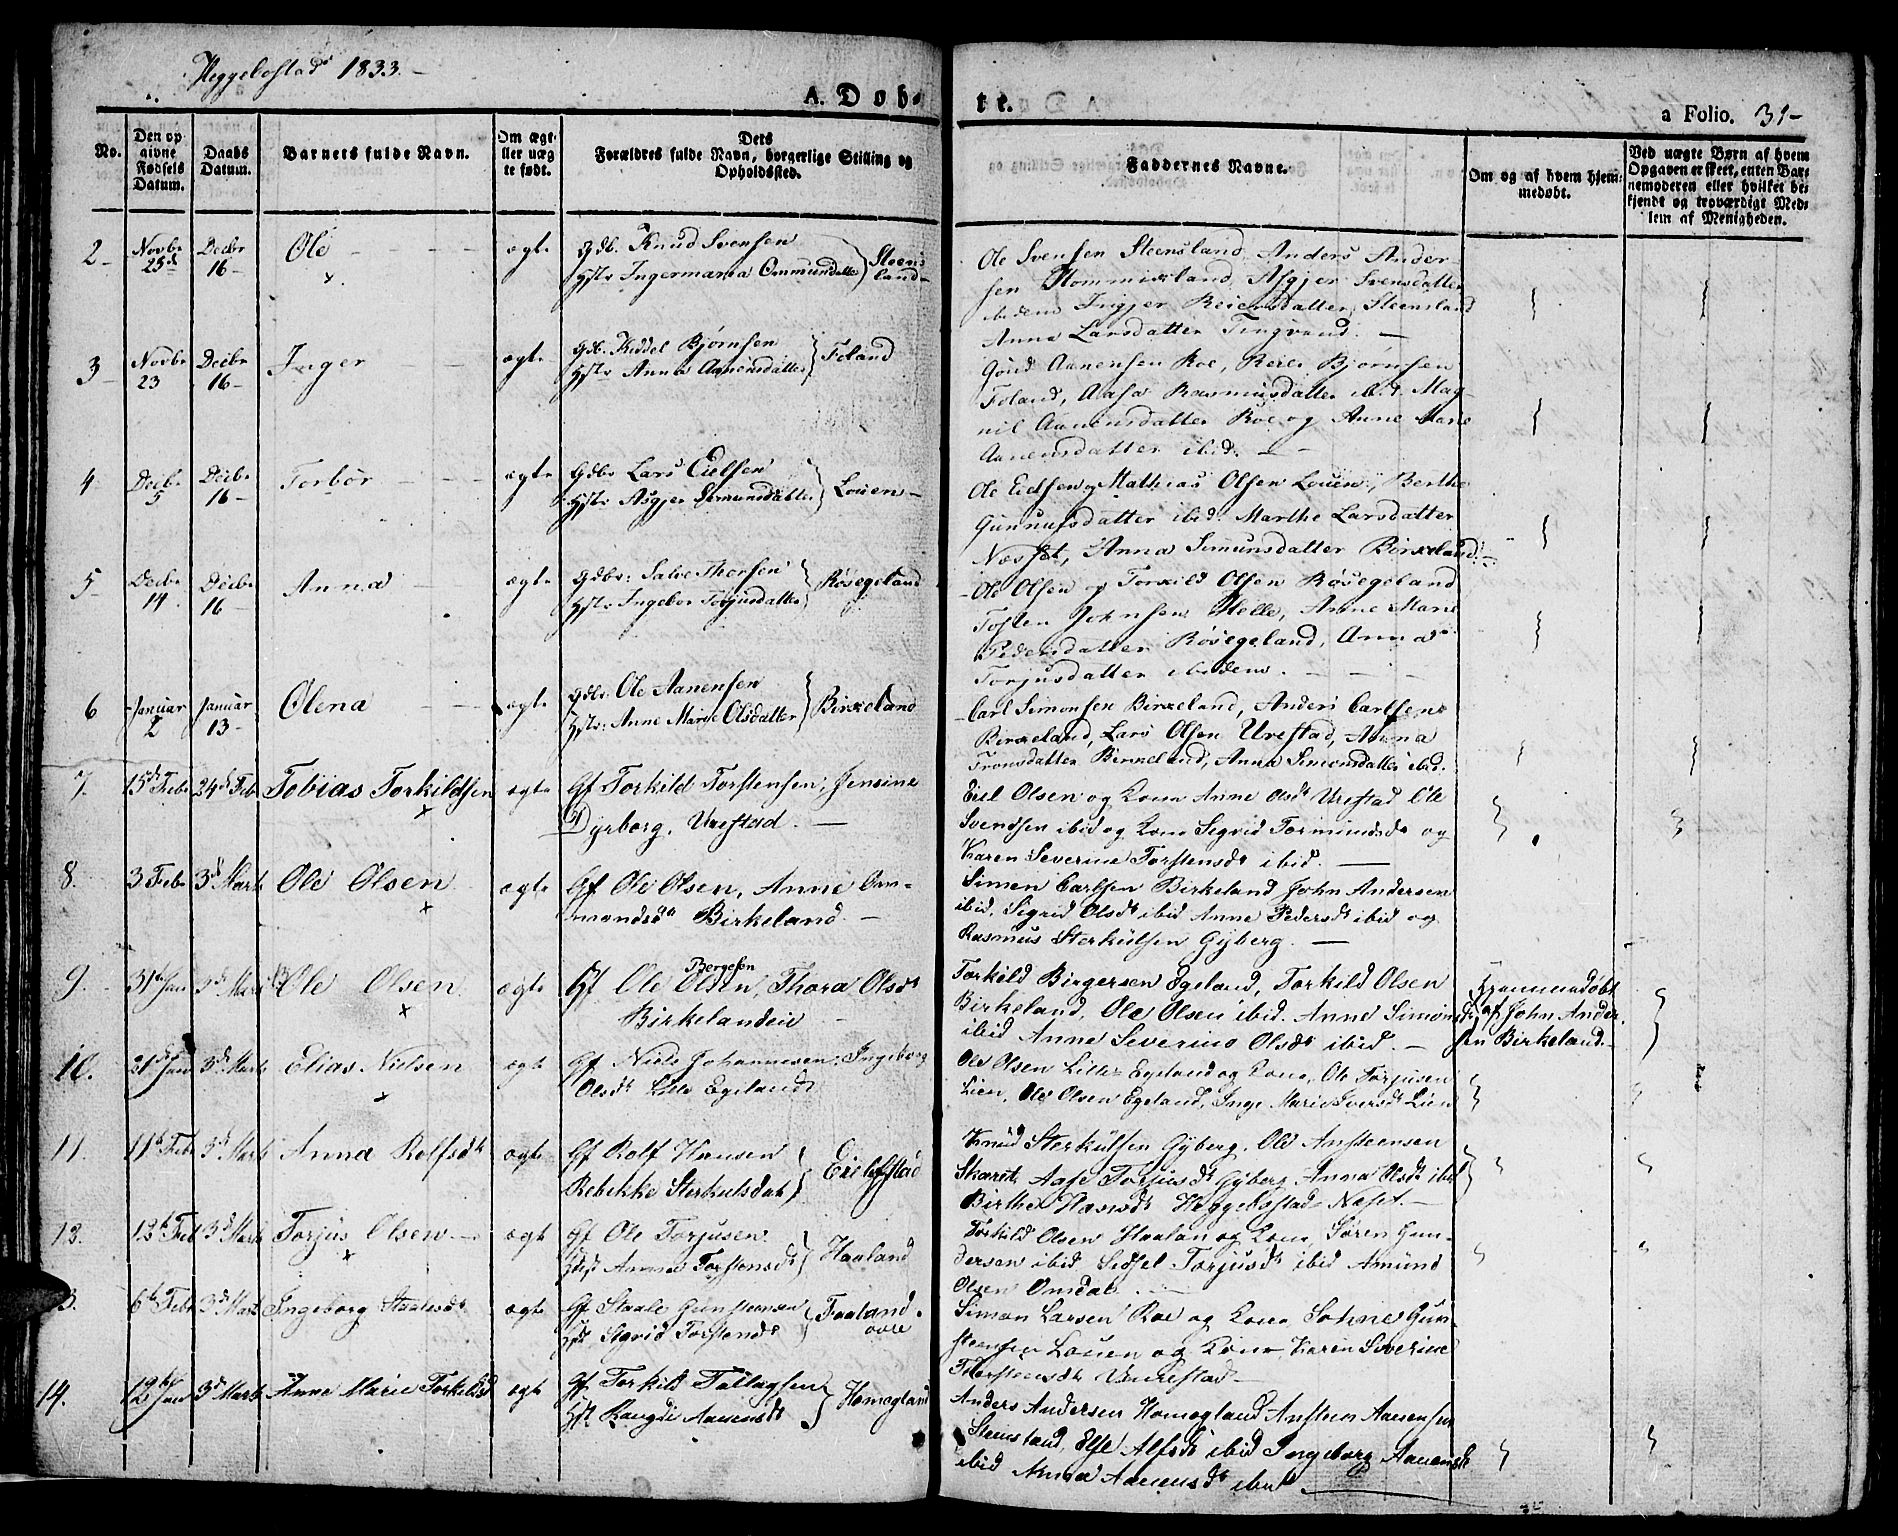 Heggebostad 1833.
A. Døb-
te.
a Folio. 31-
No.
Den op
givne
Fødsels
Datum.
Daabs
Datum.
Barnets fulde Navn.
Om ægt
eller uæg
te født.
Dets
Forældres fulde Navn, borgerlige Stilling og
Opholdssted.
Faddernes Navne.
Om og af hvem hjem-
medøbt.
Ved uægte Børn af hvem
Opgaven er skeet, enten Bar-
nemoderen eller hvilket be-
kjendt og troværdigt Med-
lem af Menigheden.
2 Novbr 25d Decbr 16 Ole ægte Gdb. Knud Svensen
Hstr Ingermaria Ommundsdatter Steens
land
Ole Svensen Steensland, Anders Ander-
sen Hommisland, Asgjer Svensdatter
ibidem Ingjer Reiersdatter Steensland
Anna Larsdatter Tingvand.
3 Novbr 23 Decbr 16 Inger ægte Gdb. Kiddel Bjørnsen
Hstr Anna Aanensdatter Foland
Aanensen Roe, Reier Bjørnsen
Foland, Aasa Rasmusdatter ibid. Mag-
nil Aanensdatter Roe og Anne Marie
Aanensdatter ibid.
4 Decbr 5 Decbr 16 Torbor ægte Gdbr Lars Eielsen
Hstr Asgjer Simunsdatter Louen
Ole Eielsen og Mathias Olsen Louen, Berthe
Gunnufsdatter ibid. Marthe Larsdatter
Nesset, Anna Simunsdatter Birkeland.
5 Decbr 14 Decbr 16 Anna ægte Gdbr: Salve Thorsen
Hstr Ingebor Torjusdatter Røsegeland
Ole Olsen og Torkild Olsen Røsegeland
Tosten Johnsen Helle, Anne Marie
Pedersdatter Røsegeland, Anna
Torjusdatter ibidem.
6 Januar 2 Januar 13 Olena ægte Gdbr: Ole Aanensen
Hstr: Anne Marie Olsdatter Birkeland
Carl Simonsen Birkeland, Anders Carlsen
Birkeland, Lars Olsen Urestad, Anna
Tronsdatter Birkeland, Anna Simonsdatter ibid.
7. 15d Febr 24d Feb Tobias Torkildsen ægte Gf Torkild Torstensen, Jensine
Dyrborg, Urestad.
Eiel Olsen og Kone Anne Olsdt Urestad Ole
Svendsen ibid og Kone Segrid Tormundsdt og
Karen Severine Torstensdt ibid.
8. 3 Febr 3d Marts Ole Olsen ægte Gf Ole Olsen, Anne Om-
mondsdt Birkeland.
Simen Carlsen Birkeland John Andersen
ibid. Segrid Olsdt ibid Anne Pedersdt ibid og
Rasmus Sterkulsen Gyberg.
9. 31te Jan 3d Marts Ole Olsen ægte Gf Ole Olsen, Thora Olsdt
Bergesen
Birkeland
Torkild Birgersen Egeland, Torkild Olsen
Birkeland, Ole Olsen ibid. Anne Simonsdt
ibid Anne Severine Olsdt ibid.
Hjemmedøbt
af John Ander-
sen Birkeland.
10. 21d Jan 3d Marts Elias Nielsen ægte Gf Niels Johannesen, Ingeborg
Olsdt Lille Egeland
Ole Olsen Lille Egeland og Kone, Ole Torjusen
Lien, Ole Olsen Egeland, Inge Marie Iversdt Lien
11. 11te Febr 3d Marts Anna Rolfsdt ægte Gf Rolf Hansen
Rebekke Sterkulsdat Eielefstad
Knud Sterkulsen Gyberg, Ole Ansteensen
Skaret, Aase Torjusdt Gyberg Anna Olsdt ibid
Birthe Hansdt Heggebostad Neset.
12. 12te Feb 3d Marts Torjus Olsen ægte Gf Ole Torjusen
Hst Anna Torstensdt Haaland
Torkild Olsen Haalan og Kone, Søren Gun-
dersen ibid Sidsel Torjusdt ibid Amund
Olsen Omdal.
13. 6te Febr 3d Marts Ingeborg Staalesdt ægte Gf Staale Gunsteensen
Hst Sigrid Torstensdt Faaland
Simon Larsen Roe og Kone, Gun-
steensen Louen og Kone, Karen Severine
Thorstensdt Urestad
14. 12te Jan 3d Marts Anne Marie Torkildsd ægte Gf Torkild Tallagsen
Hst Rangdi Aanensdt Homegland
Anders Andersen Homegland Ansteen Aanensen
Steensland, Else Alfsdt ibid Ingeborg Aanensdt
ibid Anna Aanensdt ibid